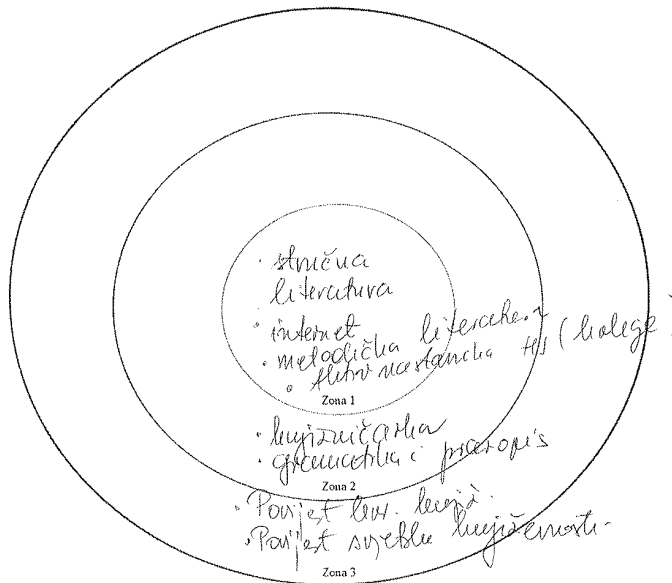 · stručna
literatura
· internet
· metodička literatura
· nastavnika (kolege)
Zona 1
· knjižničarka
· gramatika i pravopis
Zona 2
· Povijest hrv. knjiž.
· Povijest svjetske književnosti.
Zona 3